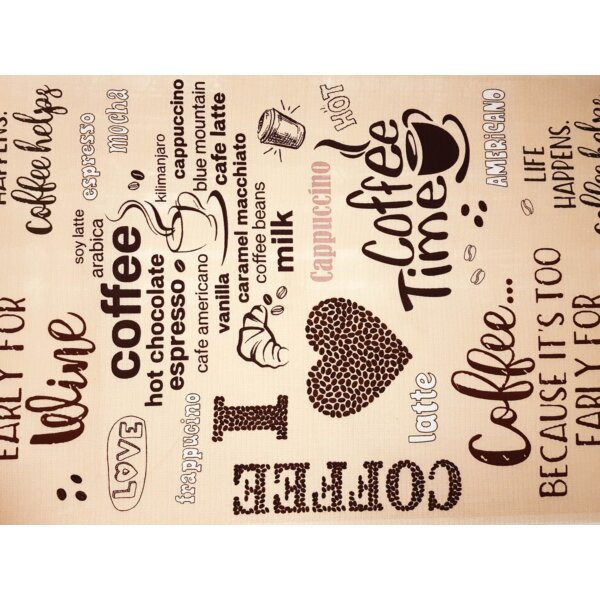 HAPPENS.
coffee helps
EARLY FOR
Wine
espresso
mocha
soy latte
arabica
coffee
hot chocolate
espresso
cafe americano
vanilla
kilimanjaro
cappuccino
blue mountain
cafe latte
caramel macchiato
coffee beans
milk
LOVE
frappucino
HOT
Cappuccino
Coffee
Time
I
COFFEE
latte
AMERICANO
LIFE
HAPPENS.
Coffee...
BECAUSE IT'S TOO
EARLY FOR